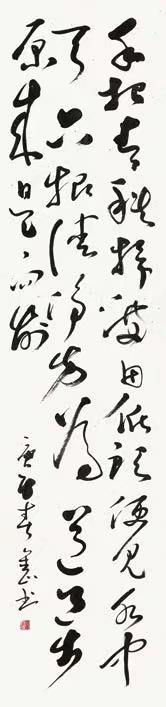 手把青秧插满田低头便见水中
天六根清净方为道退步
原来是向前
春书